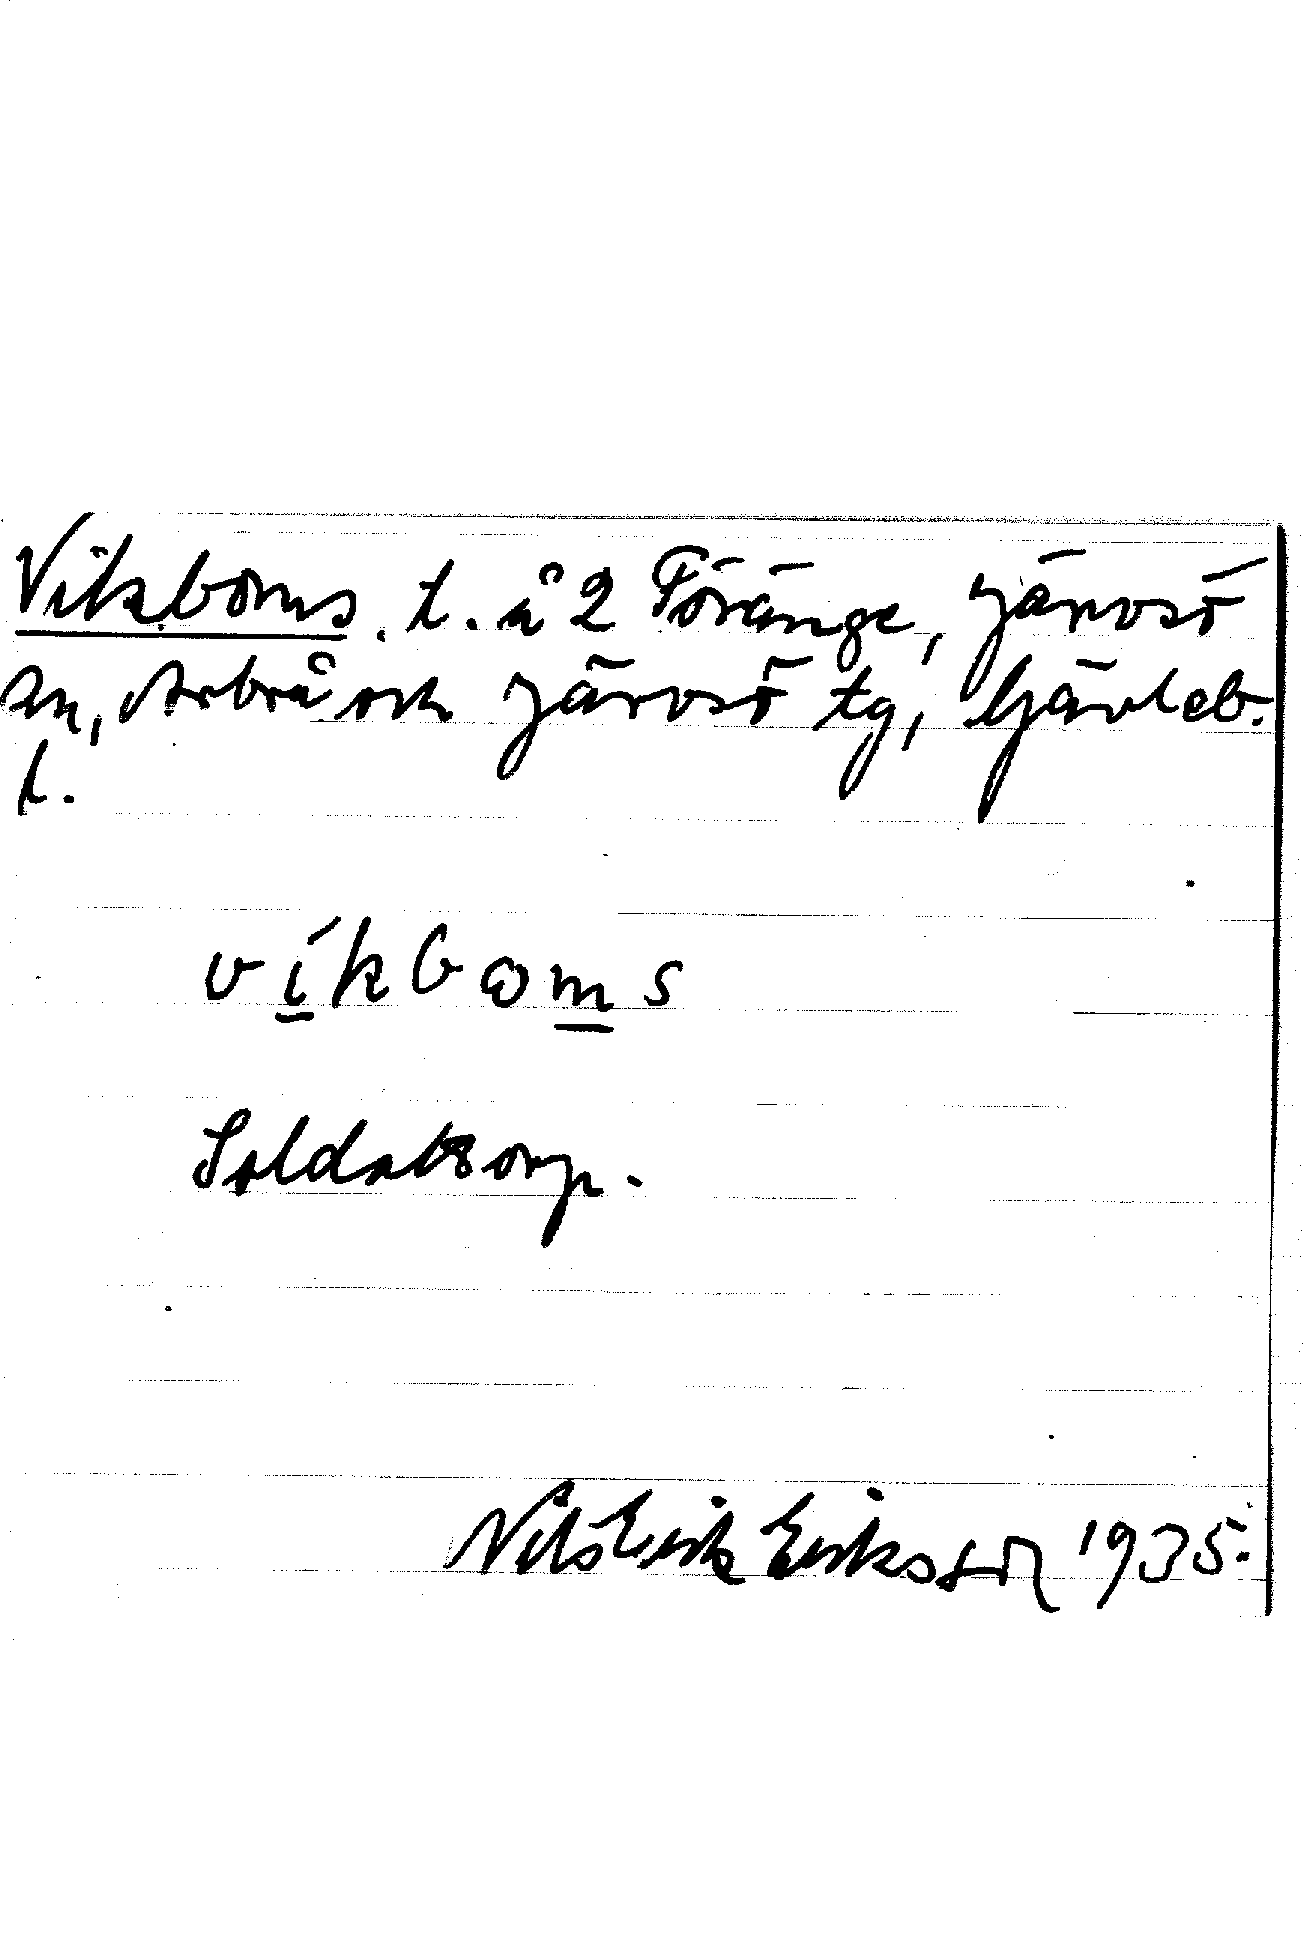 Vikboms. t. å 2 Föränge, Järvsö
sn, Arbrå och Järvsö tg, Gävleb.
l.
víkboms
Soldattorp.
Nils Erik Eriksson 1935.